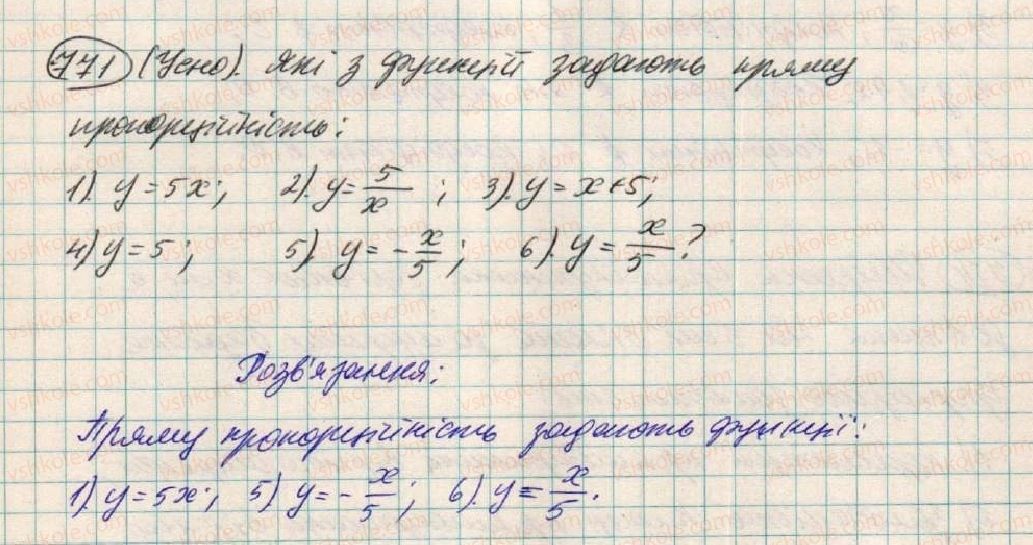 771 (Усно). Які з функцій задають пряму
пропорційність:
1). y = 5x; 2). y = 5/x ; 3). y = x+5;
4) y = 5; 5). y = - x/5; 6). y = x/5?
Розв'язання:
Пряму пропорційність задають функції:
1). y = 5x; 5) y = - x/5; 6). y = x/5.